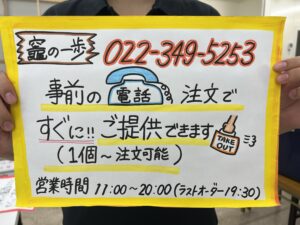 竈の一歩 022-349-5253
事前の電話注文で
すぐに!!ご提供できます
TAKE OUT
(1個～注文可能)
営業時間 11:00~20:00(ラストオーダー19:30)